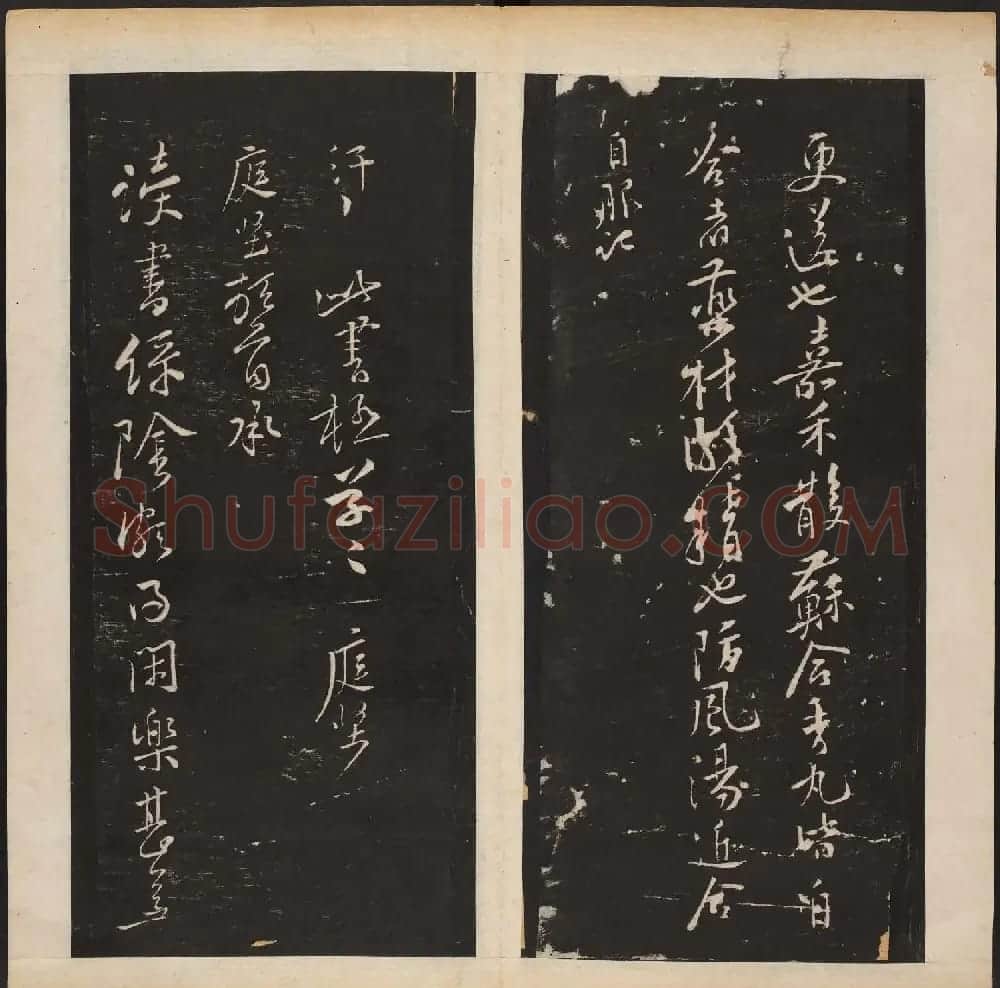 更送也嘉禾散蘇合香丸皆自
合者藥材精也防風湯近合
自服記
汗、 此書極草〻 庭堅
庭堅頓首承
讀書綠陰頗得閑樂甚善
Shufaziliao.COM